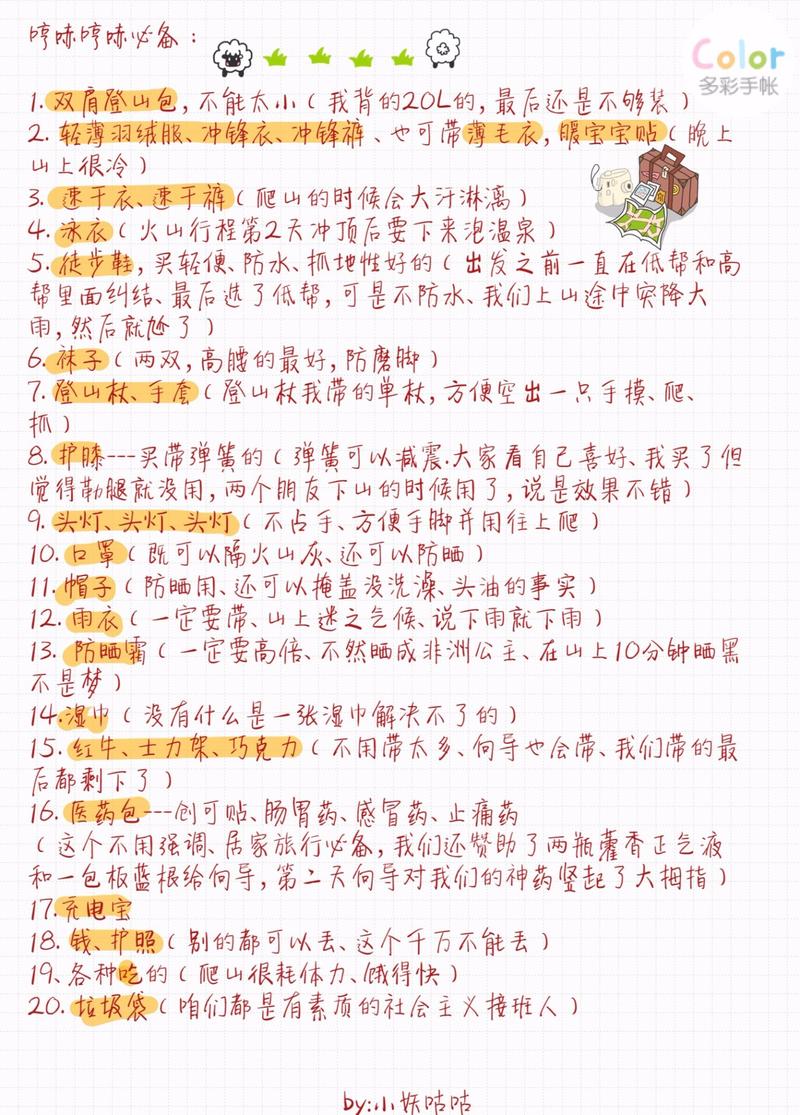 哼哧哼哧必备：
Color
多彩手帐
1. 双肩登山包，不能太小（我背的20L的，最后还是不够装）
2. 轻薄羽绒服、冲锋衣、冲锋裤、也可带薄毛衣，暖宝宝贴（晚上
山上很冷）
3. 速干衣、速干裤（爬山的时候会大汗淋漓）
4. 泳衣（火山行程第2天冲顶后要下来泡温泉）
5. 徒步鞋，买轻便、防水、抓地性好的（出发之前一直在低帮和高
帮里面纠结、最后选了低帮，可是不防水、我们上山途中突降大
雨，然后就尬了）
6. 袜子（两双，高腰的最好，防磨脚）
7. 登山杖、手套（登山杖我带的单杖，方便空出一只手摸、爬、
抓）
8. 护膝---买带弹簧的（弹簧可以减震.大家看自己喜好、我买了但
觉得勒腿就没用，两个朋友下山的时候用了，说是效果不错）
9. 头灯、头灯、头灯（不占手、方便手脚并用往上爬）
10. 口罩（既可以隔火山灰、还可以防晒）
11. 帽子（防晒用、还可以掩盖没洗澡、头油的事实）
12. 雨衣（一定要带、山上迷之气候、说下雨就下雨）
13. 防晒霜（一定要高倍、不然晒成非洲公主、在山上10分钟晒黑
不是梦）
14.湿巾（没有什么是一张湿巾解决不了的）
15. 红牛、士力架、巧克力（不用带太多、向导也会带、我们带的最
后都剩下了）
16. 医药包---创可贴、肠胃药、感冒药、止痛药
（这个不用强调、居家旅行必备，我们还赞助了两瓶藿香正气液
和一包板蓝根给向导，第二天向导对我们的神药竖起了大拇指）
17.充电宝
18. 钱、护照（别的都可以丢、这个千万不能丢）
19. 各种吃的（爬山很耗体力、饿得快）
20. 垃圾袋（咱们都是有素质的社会主义接班人）
by:小妖咕咕